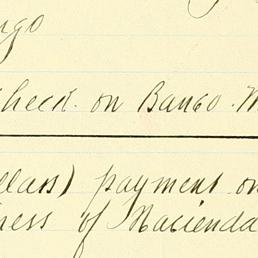 ngo
check. on Banco. M
llars) payment on
ness of Hacienda